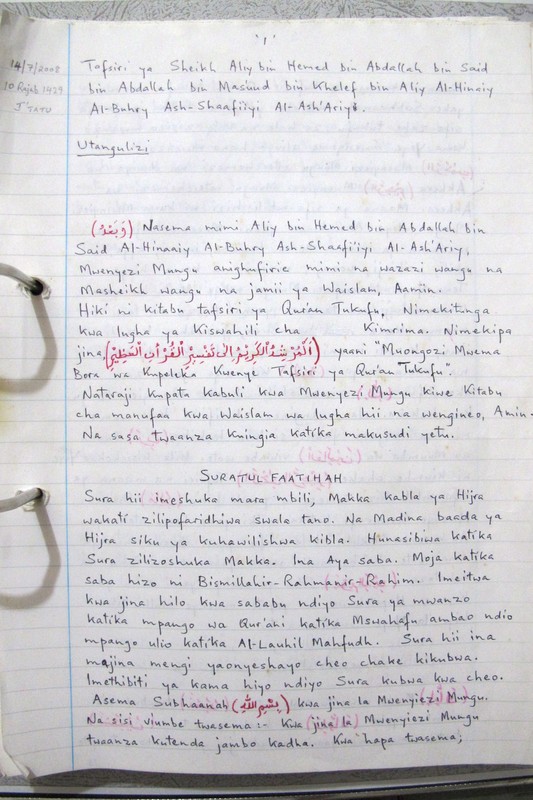 '1'
14/7/2008
10 Rajab 1429
J'TATU
Tafsiri ya Sheikh Aliy bin Hemed bin Abdallah bin Said
bin Abdallah bin Masuud bin Khelef bin Aliy Al-Hinaiy
Al-Buhry Ash-Shaafi'iyi Al-Ash'Ariy.
Utangulizi
(وَبَعْدُ) Nasema mimi Aliy bin Hemed bin Abdallah bin
Said Al-Hinaaiy Al-Buhry Ash-Shaafi'iyi Al-Ash'Ariy,
Mwenyezi Mungu anighufirie mimi na wazazi wangu na
Masheikh wangu na jamii ya Waislam, Aamiin.
Hiki ni kitabu tafsiri ya Qur'an Tukufu. Nimekitunga
kwa lugha ya Kiswahili cha Kimrima. Nimekipa
jina (اَلْمُرْشِدُ الْكَرِيْمُ إِلَى تَفْسِيْرِ الْقُرْآنِ الْعَظِيْمِ) yaani "Muongozi Mwema
Bora wa Kupeleka Kwenye Tafsiri ya Qur'an Tukufu".
Nataraji kupata kabuli kwa Mwenyezi Mungu kiwe Kitabu
cha manufaa kwa Waislam wa lugha hii na wengineo, Amin.
Na sasa twaanza kuingia katika makusudi yetu.
SURATUL FAATIHAH
Sura hii imeshuka mara mbili, Makka kabla ya Hijra
wakati zilipofaridhiwa swala tano. Na Madina baada ya
Hijra siku ya kuhawilishwa kibla. Hunasibiwa katika
Sura zilizoshuka Makka. Ina Aya saba. Moja katika
saba hizo ni Bismillahir-Rahmanir-Rahim. Imeitwa
kwa jina hilo kwa sababu ndiyo Sura ya mwanzo
katika mpango wa Qur'ani katika Mswahafu ambao ndio
mpango ulio katika Al-Lauhil Mahfudh. Sura hii ina
majina mengi yaonyeshayo cheo chake kikubwa.
Imethibiti ya kama hiyo ndiyo Sura kubwa kwa cheo.
Asema Subhaanah (بِسْمِ اللّٰهِ) kwa jina la Mwenyiezi Mungu.
Na sisi viumbe twasema:- Kwa jina la Mwenyiezi Mungu
twaanza kutenda jambo kadha. Kwa hapa twasema;